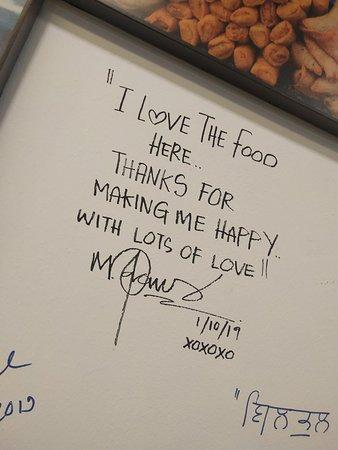 "I LOVE THE FOOD
HERE..
THANKS FOR
MAKING ME HAPPY..
WITH LOTS OF LOVE"
1/10/19
XOXOXO